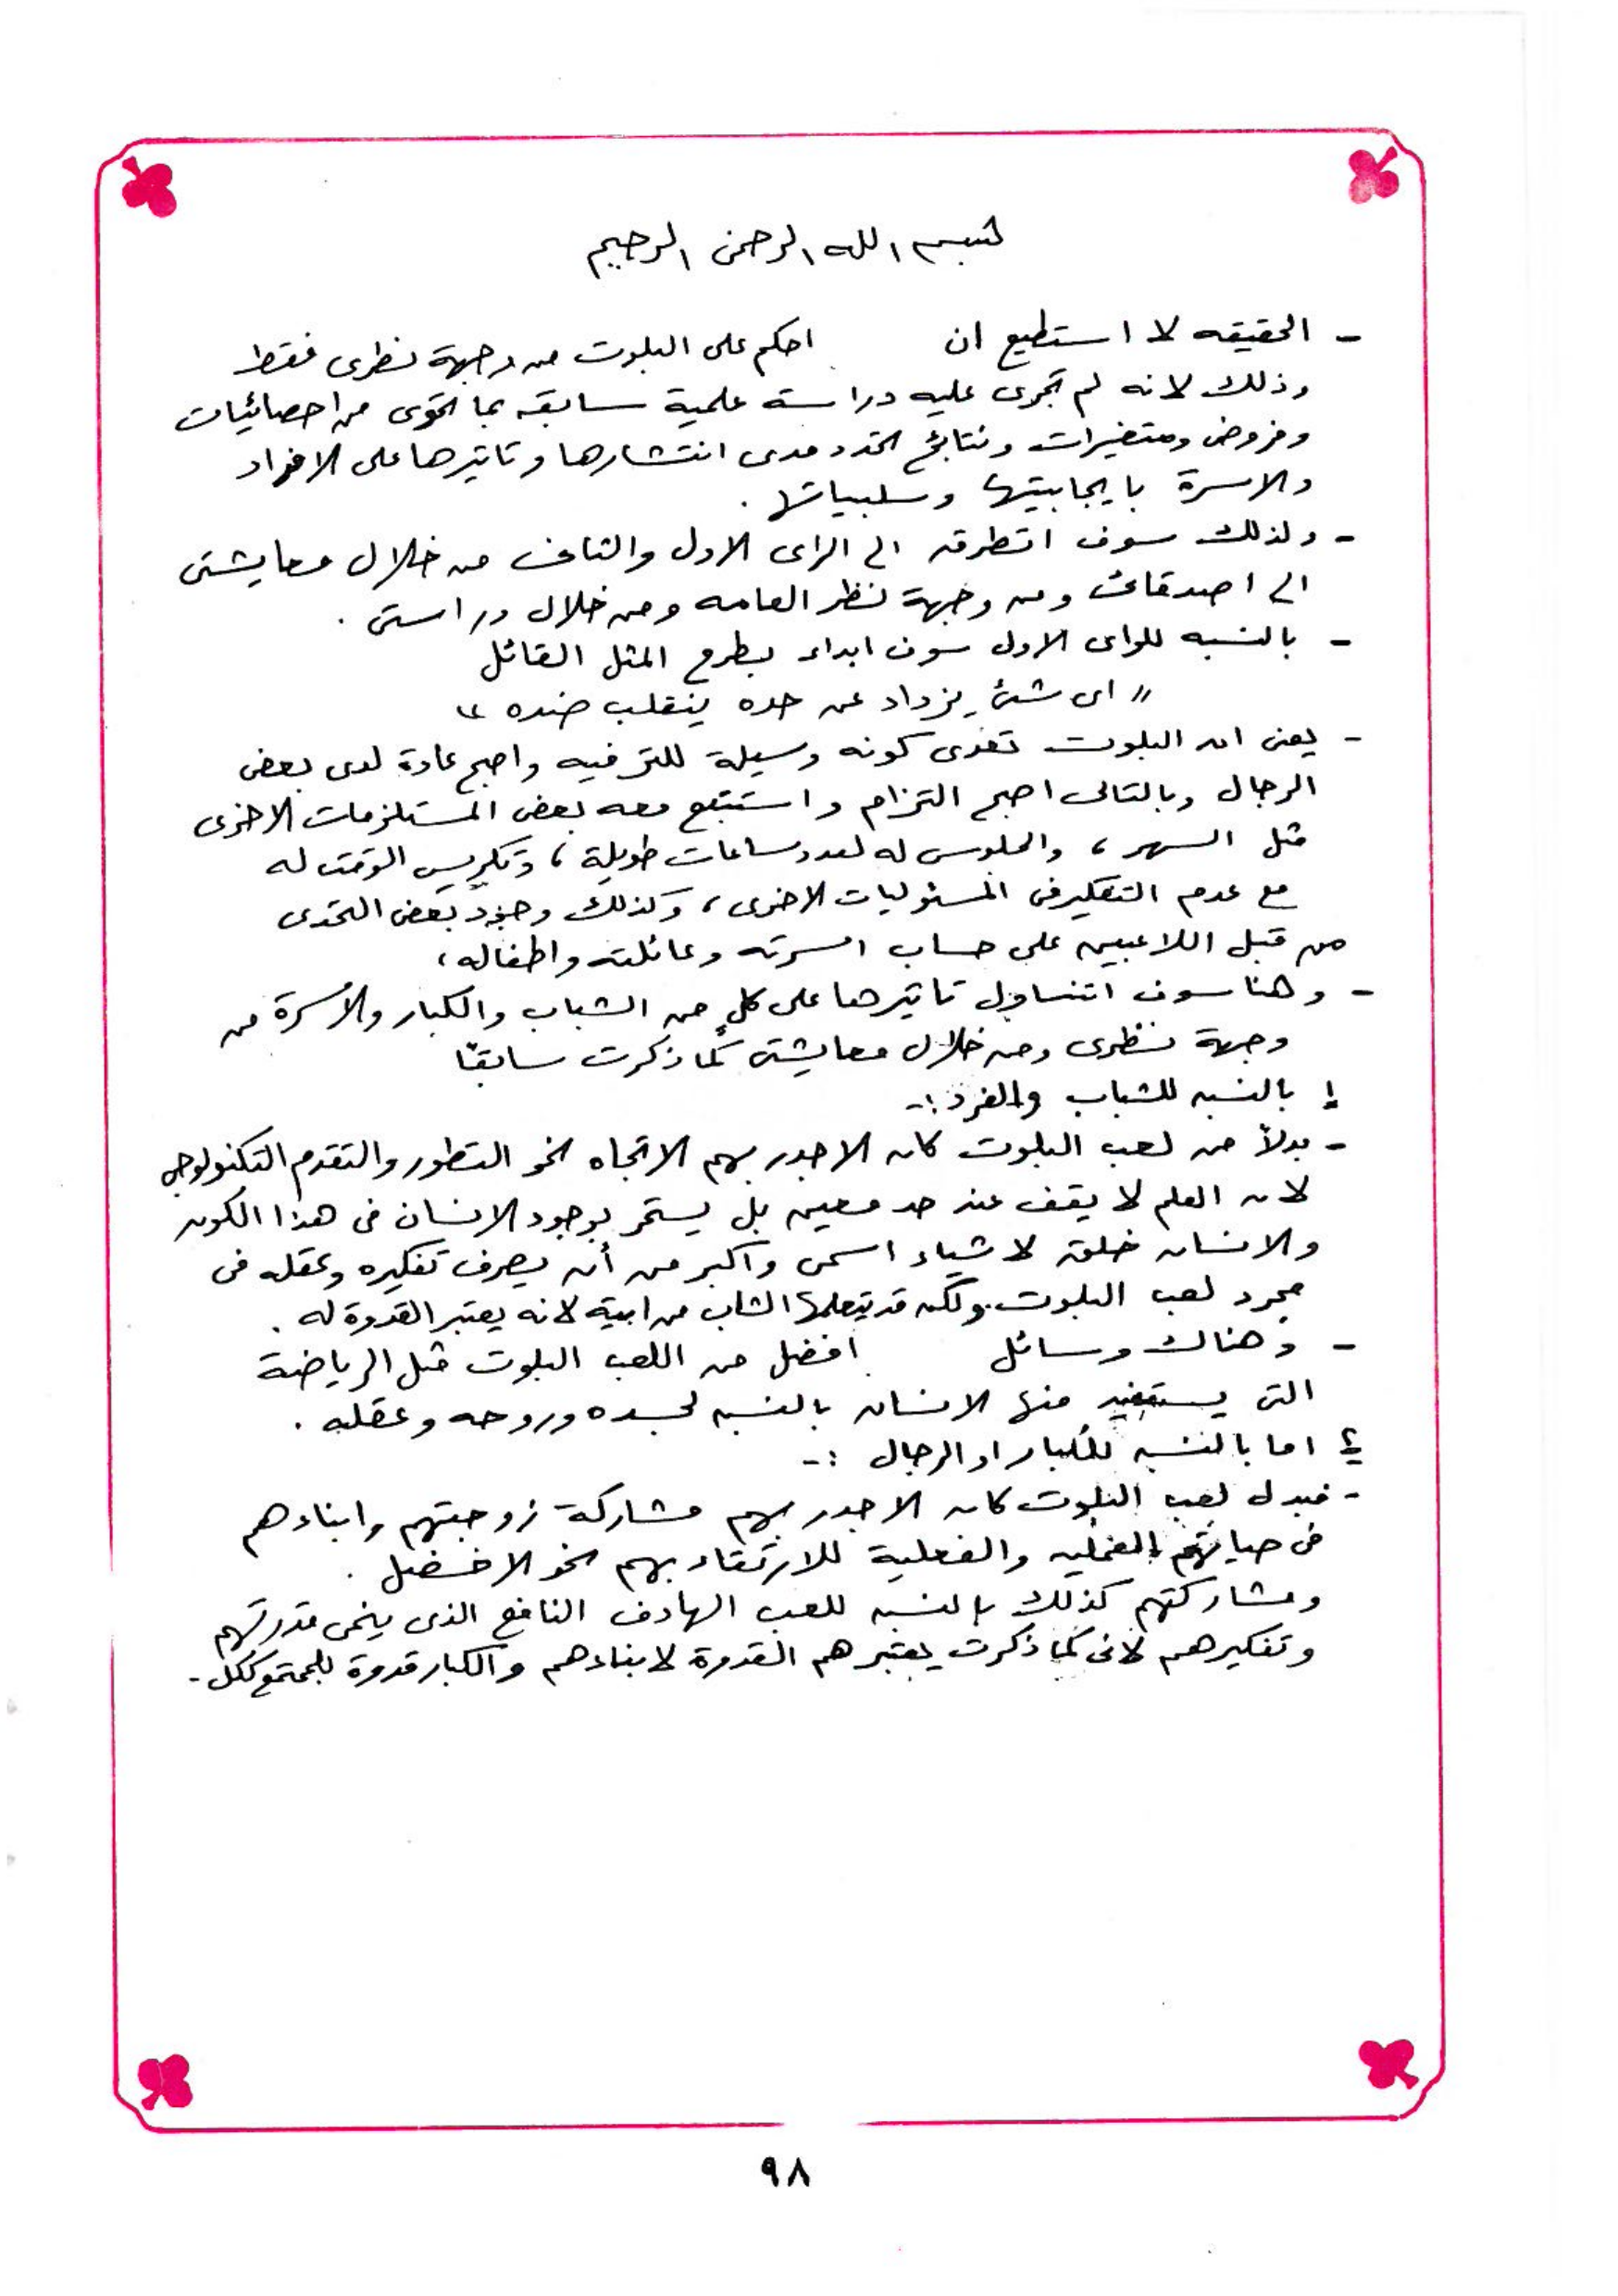 بسم الله الرحمن الرحيم
- الحقيقه لا استطيع ان احكم على البلوت من وجهة نظرى فقط
وذلك لانه لم تجرى عليه دراسة علمية سابقه بما تحوى من احصائيات
وفروض ومتغيرات ونتائج تحدد مدى انتشارها وتاثيرها على الافراد
والاسرة بايجابيتها وسلبياتها .
- ولذلك سوف اتطرق الى الراى الاول والثانى من خلال معايشتى
الى اصدقائى ومن وجهة نظر العامه ومن خلال دراستى .
- بالنسبه للراى الاول سوف ابداء بطرح المثل القائل
" اى شئ يزداد عن حده ينقلب ضده "
- يعنى ان البلوت تعدى كونه وسيلة للترفيه واصبح عادة لدى بعض
الرجال وبالتالى اصبح التزام واستتبع معه بعض المستلزمات الاخرى
مثل السهر ، والجلوس له لعدد ساعات طويلة ، وتكريس الوقت له
مع عدم التفكير فى المسئوليات الاخرى ، وكذلك وجود بعض التحدى
من قبل اللاعبين على حساب اسرته وعائلته واطفاله ،
- وهنا سوف اتناول تاثيرها على كلٍ من الشباب والكبار والأسرة من
وجهة نظرى ومن خلال معايشتى كما ذكرت سابقًا
١ بالنسبه للشباب والفرد :-
- بدلاً من لعب البلوت كان الاجدر بهم الاتجاه نحو التطور والتقدم التكنولوجى
لان العلم لا يقف عند حد معين بل يستمر بوجود الانسان فى هذا الكون
والانسان خلق لاشياء اسمى واكبر من أن يصرف تفكيره وعقله فى
مجرد لعب البلوت . ولكن قد يتعلمها الشاب من ابية لانه يعتبر القدوة له .
- وهناك وسائل افضل من اللعب البلوت مثل الرياضة
التى يستفيد منها الانسان بالنسبه لجسده وروحه وعقله .
٢ اما بالنسبه للكبار او الرجال :-
- فبدل لعب البلوت كان الاجدر بهم مشاركة زوجتهم وابناءهم
فى حياتهم العمليه والفعلية للارتقاء بهم نحو الافضل .
ومشاركتهم كذلك بالنسبه للعب الهادف النافع الذى ينمى قدرتهم
وتفكيرهم لانى كما ذكرت يعتبر هم القدوة لابناءهم والكبار قدوة للمجتمع ككل -
٩٨